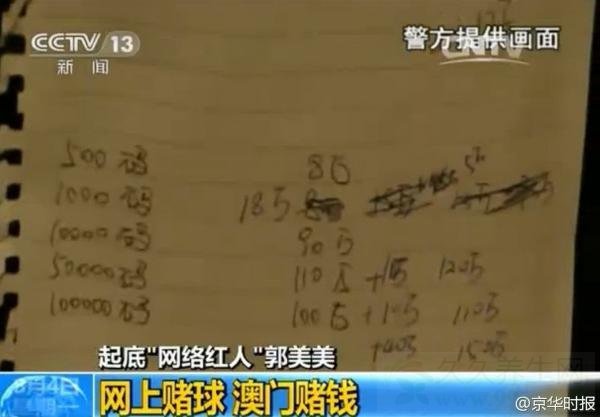 CCTV 13
新闻
警方提供画面
CNTV
500码 8万
1000码 18万
10000码 90万
50000码 110万 +1万 120万
100000码 100万 +10万 110万
+40万 150万
起底"网络红人"郭美美
网上赌球 澳门赌钱
8月4日
星期一
@京华时报